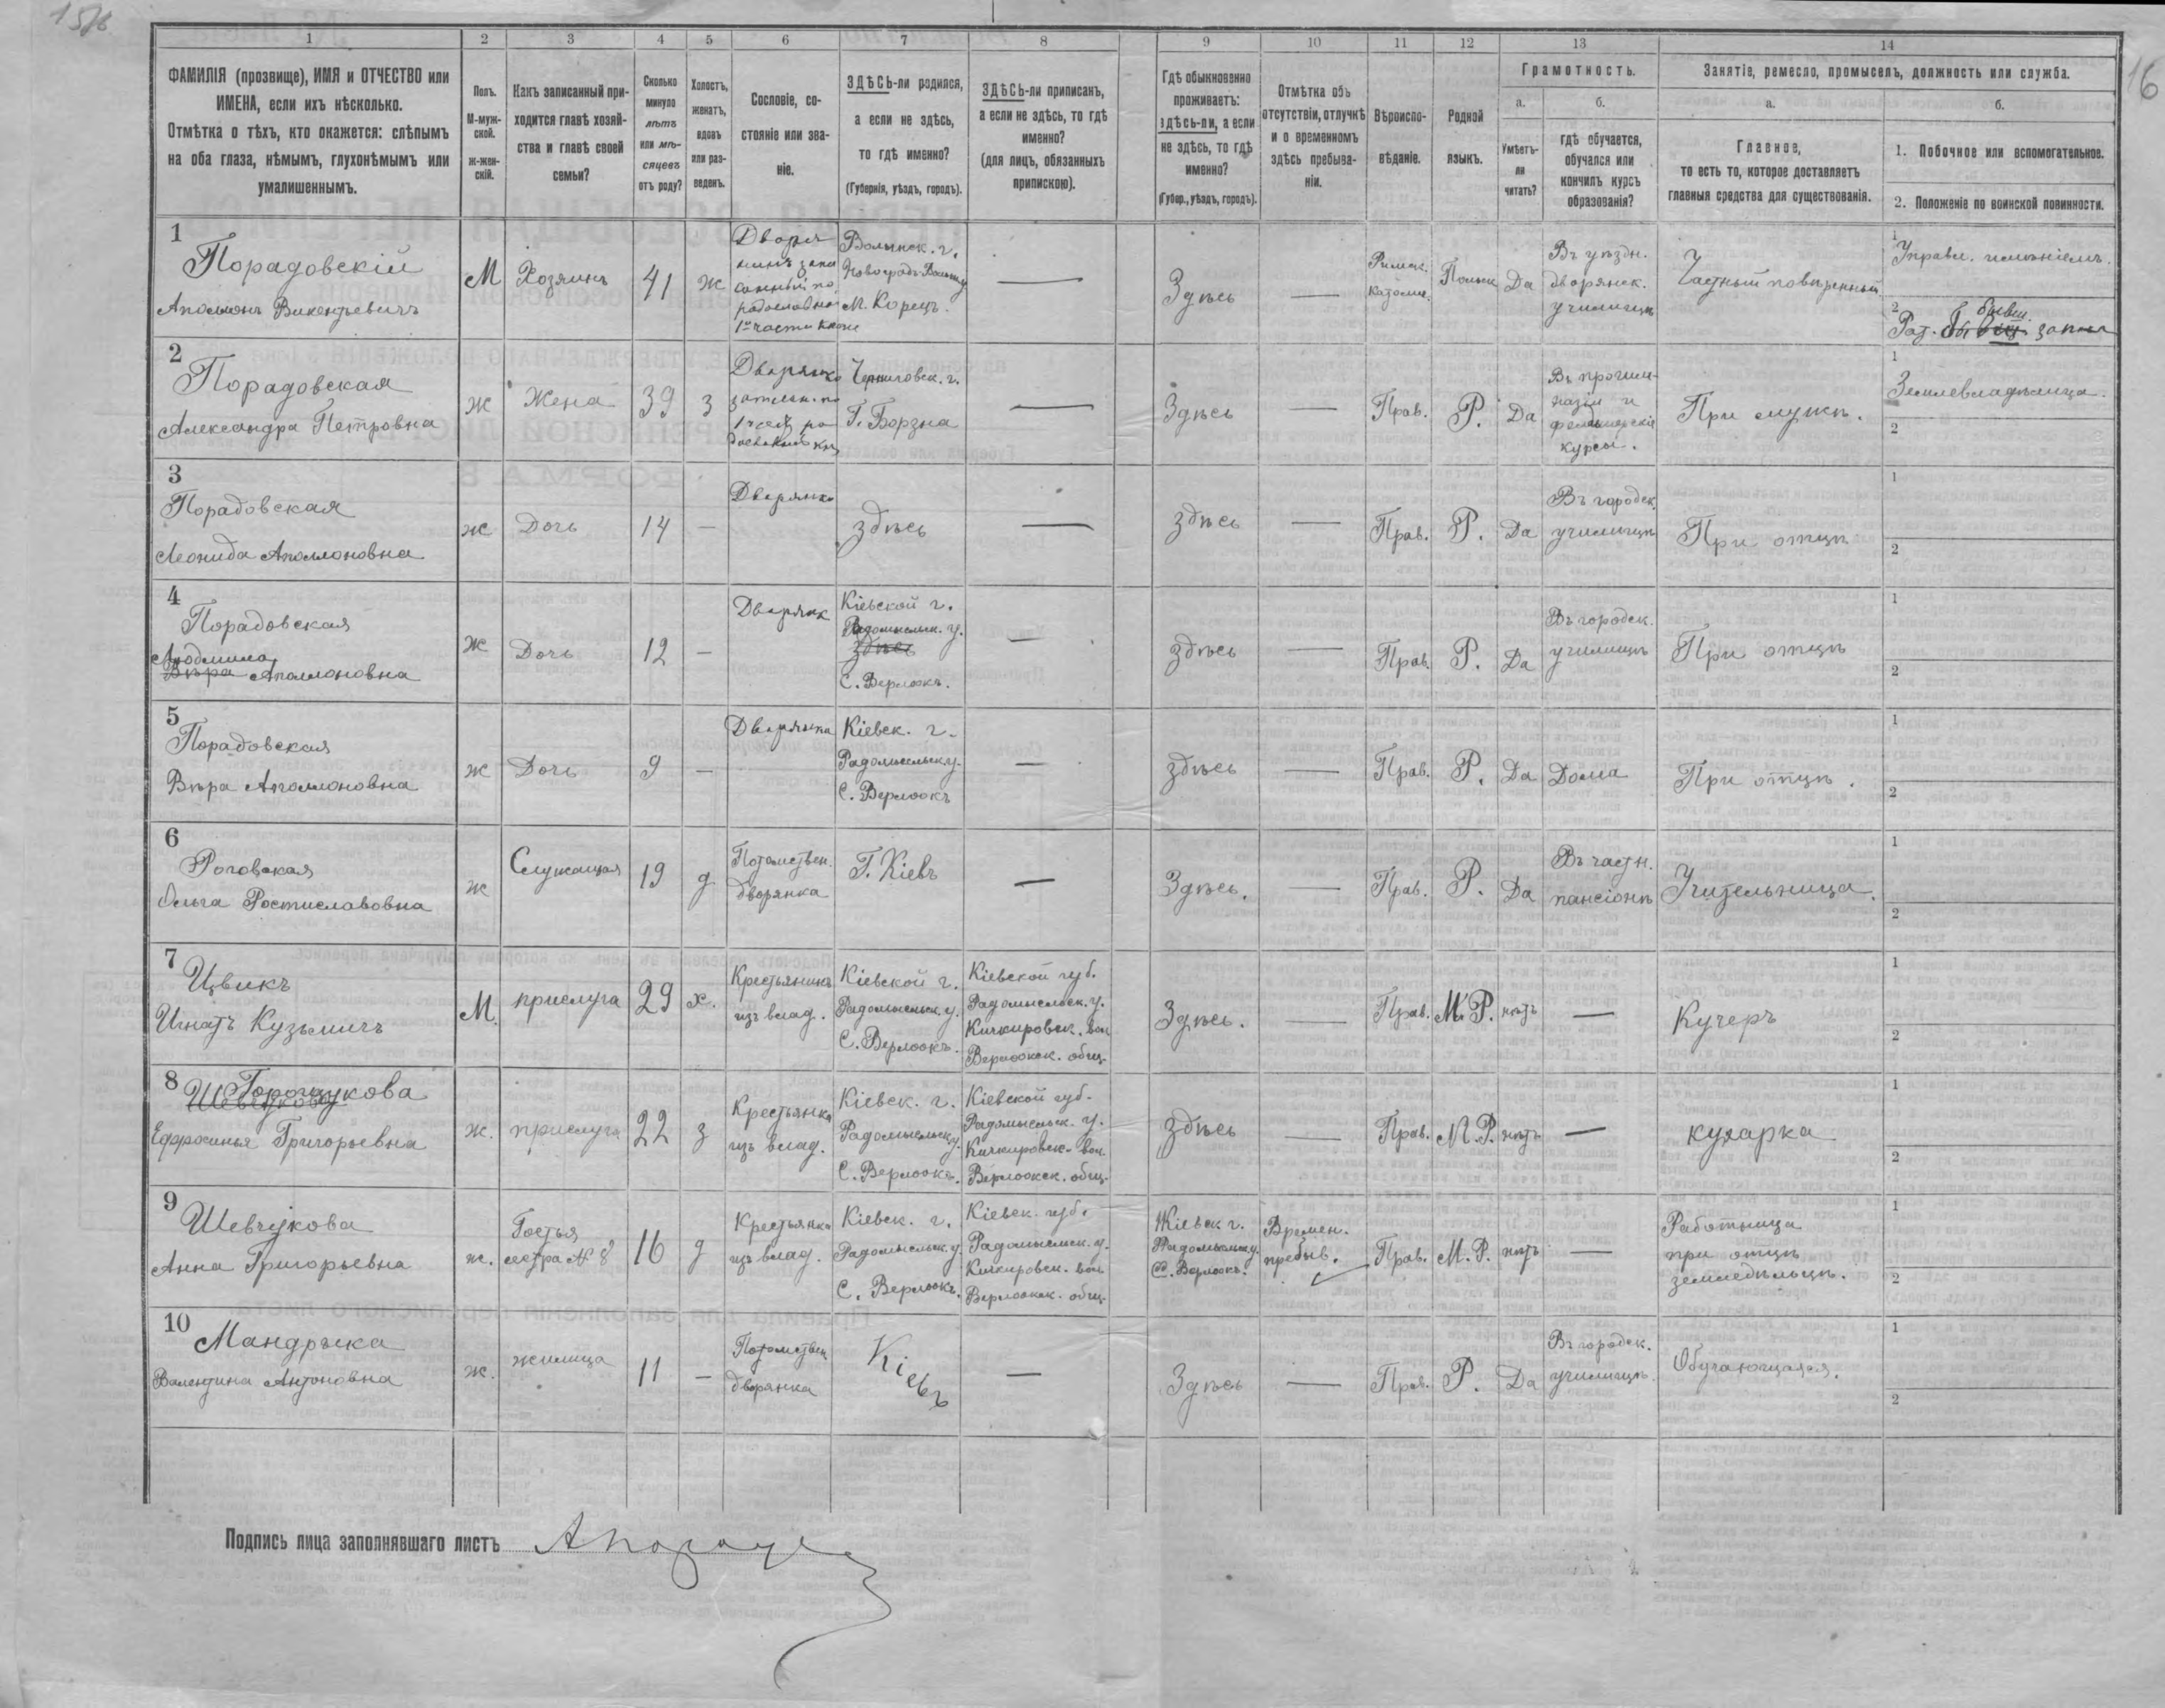 15/16
16
1 2 3 4 5 6 7 8 9 10 11 12 13 14
ФАМИЛІЯ (прозвище), ИМЯ и ОТЧЕСТВО или
ИМЕНА, если ихъ нѣсколько.
Отмѣтка о тѣхъ, кто окажется: слѣпымъ
на оба глаза, нѣмымъ, глухонѣмымъ или
умалишеннымъ.
Полъ.
М-муж-
ской.
ж-жен-
скій.
Какъ записанный при-
ходится главѣ хозяй-
ства и главѣ своей
семьи?
Сколько
минуло
лѣтъ
или мѣ-
сяцевъ
отъ роду?
Холостъ,
женатъ,
вдовъ
или раз-
веденъ.
Сословіе, со-
стояніе или зва-
ніе.
ЗДѢСЬ-ли родился,
а если не здѣсь,
то гдѣ именно?
(Губернія, уѣздъ, городъ).
ЗДѢСЬ-ли приписанъ,
а если не здѣсь, то гдѣ
именно?
(для лицъ, обязанныхъ
припискою).
Гдѣ обыкновенно
проживаетъ:
здѣсь-ли, а если
не здѣсь, то гдѣ
именно?
(Губер., уѣздъ, городъ).
Отмѣтка объ
отсутствіи, отлучкѣ
и о временномъ
здѣсь пребыва-
ніи.
Вѣроиспо-
вѣданіе.
Родной
языкъ.
Грамотность.
а.
Умѣетъ-
ли
читать?
б.
гдѣ обучается,
обучался или
кончилъ курсъ
образованія?
Занятіе, ремесло, промыселъ, должность или служба.
а.
Главное,
то есть то, которое доставляетъ
главныя средства для существованія.
б.
1. Побочное или вспомогательное.
2. Положеніе по воинской повинности.
1
Порадовскій
Аполлонъ Викентьевичъ
М
Хозяинъ
41
ж
Дворя
нинъ запи
санный по
родословной
1ой части книги
Волынск. г.
Новоградъ-Волыну
М. Корецъ.
—
Здѣсь
—
Римск.
Католич.
Польск
Да
Въ уѣздн.
дворянск.
училищѣ
Частный повѣренный
1
Управл. имѣніемъ.
2
бывш.
Рат.
2
Порадовская
Александра Петровна
ж
Жена
39
з
Дворянка
1 части ро
Черниговск. г.
Г. Борзна
—
Здѣсь
—
Прав.
Р.
Да
Въ прогим-
назіи и
фельдшерскіе
курсы.
При мужѣ.
1
Землевладѣлица.
2
3
Порадовская
Леонида Аполлоновна
ж
Дочь
14
—
Дворянка
здѣсь
—
здѣсь
—
Прав.
Р.
Да
Въ городск.
училищѣ
При отцѣ
1
2
4
Порадовская
Людмила
Вѣра Аполлоновна
ж
Дочь
12
—
Дворянк
Кіевской г.
Радомысльск. у.
здѣсь
С. Верлоокъ.
—
здѣсь
—
Прав.
Р.
Да
Въ городск.
училищѣ
При отцѣ
1
2
5
Порадовская
Вѣра Аполлоновна
ж
Дочь
9
—
Дворянка
Кіевск. г.
Радомысльск у.
С. Верлоокъ
—
здѣсь
—
Прав.
Р.
Да
Дома
При отцѣ.
1
2
6
Роговская
Ольга Ростиславовна
ж
Служащая
19
д
Потомствен.
дворянка
Г. Кіевъ
—
Здѣсь.
—
Прав.
Р.
Да
Въ частн.
пансіонѣ
Учительница.
1
2
7
Цвикъ
Игнатъ Кузьмичъ
М.
прислуга
29
х.
Крестьянинъ
изъ влад.
Кіевской г.
Радомысльск. у.
С. Верлоокъ.
Кіевской губ.
Радомысльск. у.
Кичкировск. вол
Верлоокск. общ.
Здѣсь.
—
Прав.
М. Р.
нѣтъ
—
Кучеръ
1
2
8
Горощукова
Шевчукова
Ефросинья Григорьевна
ж.
прислуга
22
з
Крестьянка
изъ влад.
Кіевск. г.
Радомысльск у.
С. Верлоокъ.
Кіевской губ.
Радомысльск. у.
Кичкировск. вол
Верлоокск. общ.
здѣсь
—
Прав.
М. Р.
нѣтъ
—
кухарка
1
2
9
Шевчукова
Анна Григорьевна
ж.
Гостья
сестра № 8
16
д
Крестьянка
изъ влад.
Кіевск. г.
Радомысльск. у.
С. Верлоокъ.
Кіевск. губ.
Радомысльск. у.
Кичкировск. вол
Верлоокск. общ.
Кіевск г.
Радомысльск у.
С. Верлоокъ.
Времен.
пребыв.
Прав.
М. Р.
нѣтъ
—
Работница
при отцѣ
земледѣльцѣ.
1
2
10
Мандрыка
Валентина Антоновна
ж.
жилица
11
—
Потомствен
дворянка
Кіевъ
—
Здѣсь
—
Прав.
Р.
Да
Въ городск.
училищѣ.
Обучающаяся.
1
2
Подпись лица заполнявшаго листъ